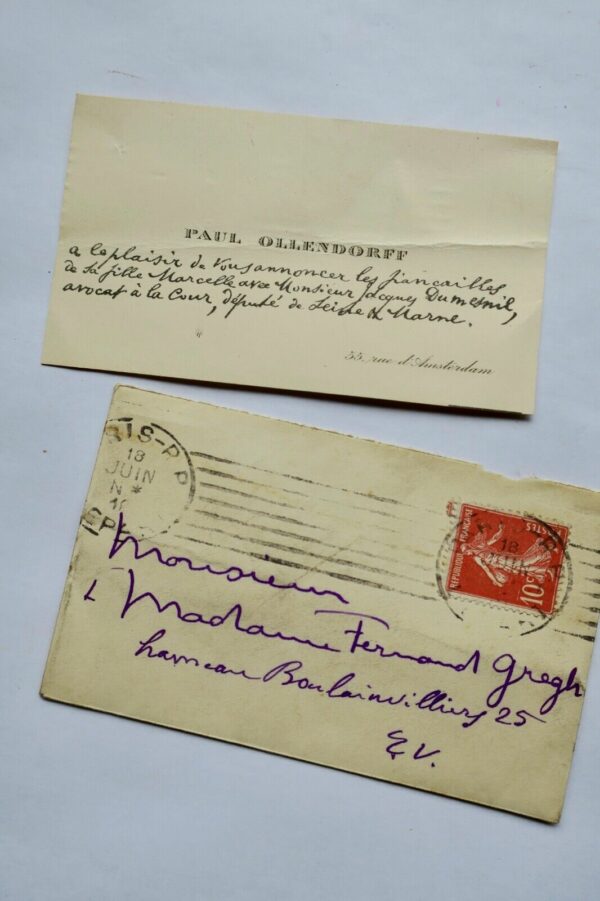 PAUL OLLENDORFF
a le plaisir de vous annoncer les fiancailles
de sa fille Marcelle avec Monsieur Jacques Dumesnil,
avocat à la Cour, député de Seine & Marne.
55, rue d'Amsterdam
18
JUIN
REPUBLIQUE FRANÇAISE
POSTES
10c
18
Monsieur
& Madame Fernand Gregh
hameau Boulainvilliers 25
E.V.